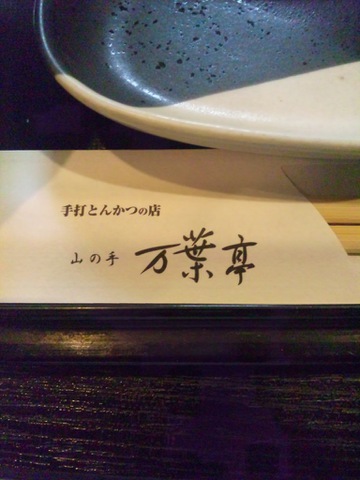 手打とんかつの店
山の手 万葉亭